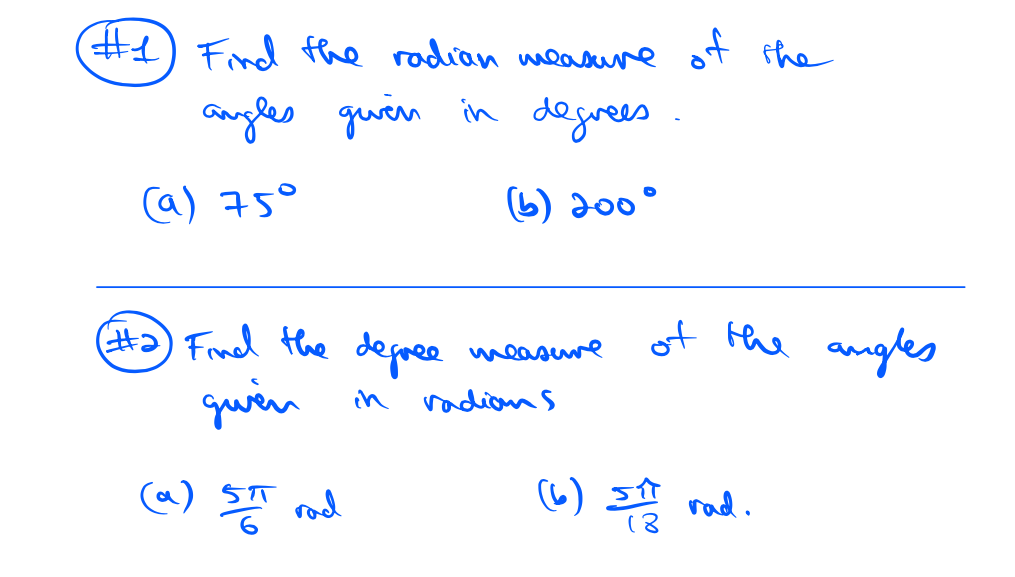 #1 Find the radian measure of the
angles given in degrees.
(a) 75° (b) 200°
#2 Find the degree measure of the angles
given in radians
(a) 5π/6 rad (b) 5π/18 rad.